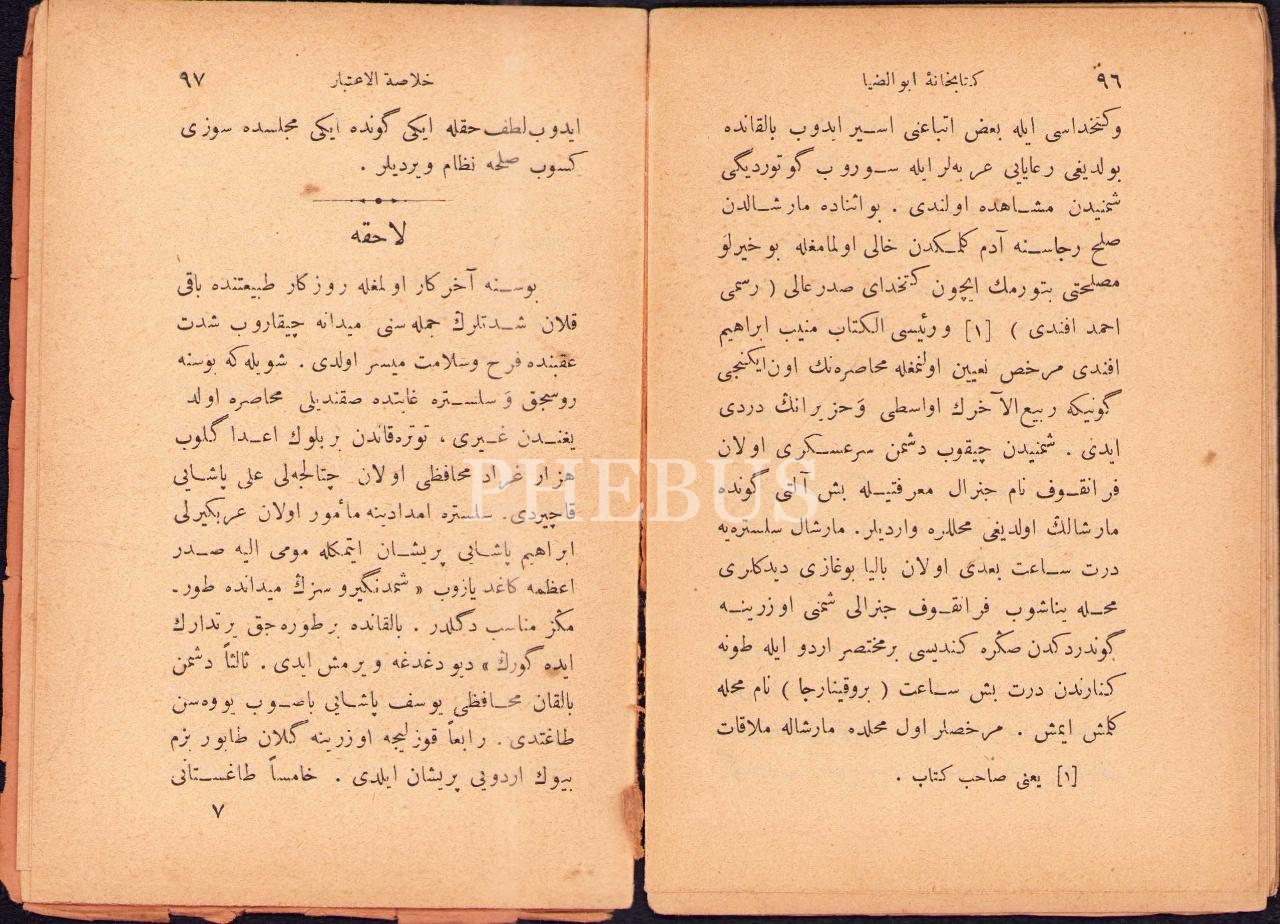 ٩٦
كتابخانهٔ ابوالضيا
وكتخداسى ايله بعض اتباعنى اسير ايدوب بالقانده
بولديغى رعايايى عربه‌لر ايله سوروب گوتورديگى
شمنيدن مشاهده اولندى . بواثناده مارشالدن
صلح رجاسنه آدم كلمكدن خالى اولمامغله بوخيرلو
مصلحتى بتورمك ايچون كتخداى صدرعالى ( رسمى
احمد افندى ) [١] و رئيسى الكتاب منيب ابراهيم
افندى مرخص تعيين اولنمغله محاصره‌نك اون‌ايكنجى
گونيكه ربيع‌الآخرك اواسطى وَحزيرانڭ دردى
ايدى . شمنيدن چيقوب دشمن سرعسكرى اولان
فرانقوف نام جنرال معرفتيله بش آلتى گونده
مارشالڭ اولديغى محللره وارديلر. مارشال سلستره‌يه
درت ساعت بعدى اولان باليا بوغازى ديدكلرى
محله يناشوب فرانقوف جنرالى شمنى اوزرينه
گوندردكدن صڭره كنديسى برمختصر اردو ايله طونه
كنارندن درت بش ساعت ( بروقينارجا ) نام محله
كلمش ايمش . مرخصلر اول محلده مارشاله ملاقات
[١] يعنى صاحب كتاب .
خلاصة الاعتبار
٩٧
ايدوب لطف حقله ايكى گونده ايكى مجلسده سوزى
كسوب صلحه نظام ويرديلر .
لاحقه
بوسنه آخركار اولمغله روزكار طبيعتنده باقى
قلان شدتلرڭ جمله‌سنى ميدانه چيقاروب شدت
عقبنده فرح وسلامت ميسر اولدى . شويله‌كه بوسنه
روسجق وَ سلستره غايتده صقنديلى محاصره اولد
يغندن غيرى ، توتره‌قاندن بربلوك اعدا گلوب
هزار غراد محافظى اولان چتالجه‌لى على پاشايى
قاچيردى. سلستره امدادينه مأمور اولان عربكيرلى
ابراهيم پاشايى پريشان ايتمكله مومى اليه صدر
اعظمه كاغد يازوب « شمدنگيرو سزڭ ميدانده طور-
مڭز مناسب دگلدر. بالقانده برطوره‌جق يرتدارك
ايده گورڭ » ديو دغدغه ويرمش ايدى . ثالثاً دشمن
بالقان محافظى يوسف پاشايى باصوب يووه‌سن
طاغتدى . رابعاً قوزليجه اوزرينه گلان طابور بزم
بيوك اردويى پريشان ايلدى . خامساً طاغستانى
٧
PHEBUS